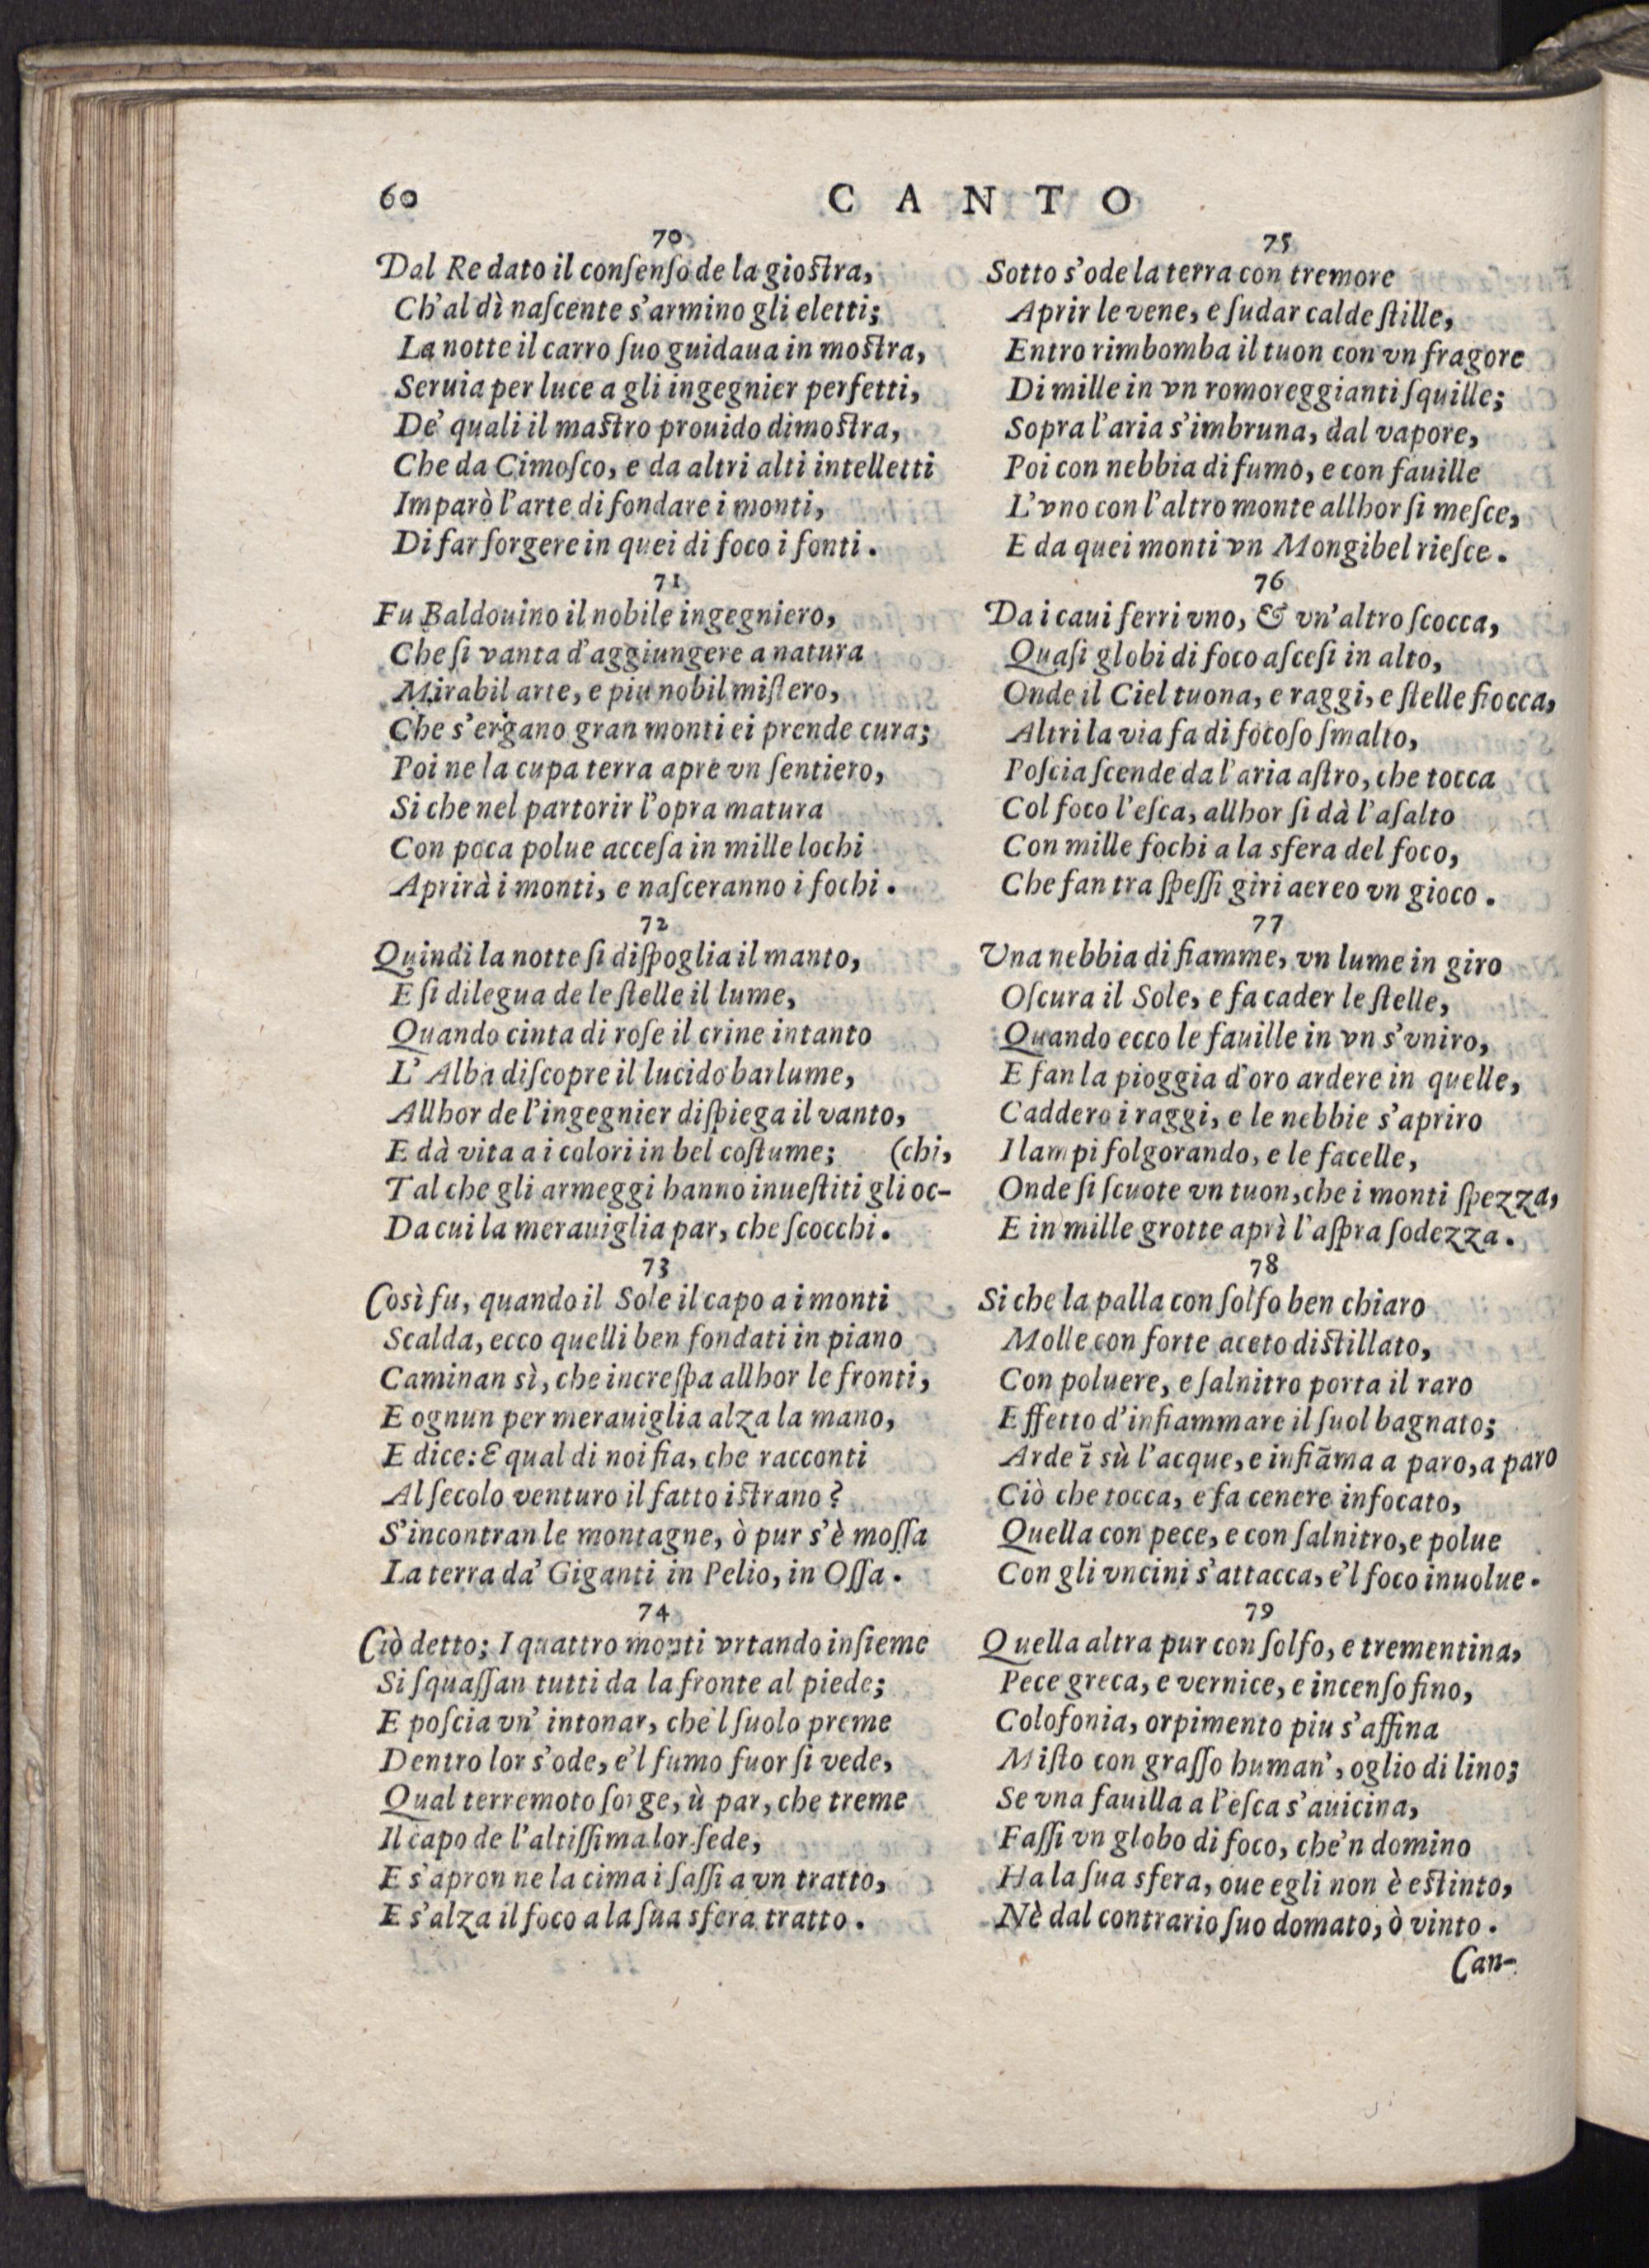 60
CANTO
70
Dal Re dato il conſenſo de la gioſtra,
Ch'al dì naſcente s'armino gli eletti;
La notte il carro ſuo guidaua in moſtra,
Seruia per luce a gli ingegnier perfetti,
De' quali il maſtro prouido dimoſtra,
Che da Cimoſco, e da altri alti intelletti
Imparò l'arte di fondare i monti,
Di far ſorgere in quei di foco i fonti.
71
Fu Baldouino il nobile ingegniero,
Che ſi vanta d'aggiungere a natura
Mirabil arte, e piu nobil miſtero,
Che s'ergano gran monti ei prende cura;
Poi ne la cupa terra apre vn ſentiero,
Si che nel partorir l'opra matura
Con poca polue acceſa in mille lochi
Aprirà i monti, e naſceranno i fochi.
72
Quindi la notte ſi diſpoglia il manto,
E ſi dilegua de le ſtelle il lume,
Quando cinta di roſe il crine intanto
L'Alba diſcopre il lucido barlume,
Allhor de l'ingegnier diſpiega il vanto,
E dà vita a i colori in bel coſtume; (chi,
Tal che gli armeggi hanno inueſtiti gli oc-
Da cui la merauiglia par, che ſcocchi.
73
Così fu, quando il Sole il capo a i monti
Scalda, ecco quelli ben fondati in piano
Caminan sì, che increſpa allhor le fronti,
E ognun per merauiglia alza la mano,
E dice: E qual di noi fia, che racconti
Al ſecolo venturo il fatto iſtrano?
S'incontran le montagne, ò pur s'è moſſa
La terra da' Giganti in Pelio, in Oſſa.
74
Ciò detto; I quattro monti vrtando inſieme
Si ſquaſſan tutti da la fronte al piede;
E poſcia vn' intonar, che'l ſuolo preme
Dentro lor s'ode, e'l fumo fuor ſi vede,
Qual terremoto ſorge, ù par, che treme
Il capo de l'altiſſima lor ſede,
E s'apron ne la cima i ſaſſi a vn tratto,
E s'alza il foco a la ſua sfera tratto.
75
Sotto s'ode la terra con tremore
Aprir le vene, e ſudar calde ſtille,
Entro rimbomba il tuon con vn fragore
Di mille in vn romoreggianti ſquille;
Sopra l'aria s'imbruna, dal vapore,
Poi con nebbia di fumo, e con fauille
L'vno con l'altro monte allhor ſi meſce,
E da quei monti vn Mongibel rieſce.
76
Da i caui ferri vno, & vn'altro ſcocca,
Quaſi globi di foco aſceſi in alto,
Onde il Ciel tuona, e raggi, e ſtelle fiocca,
Altri la via fa di focoſo ſmalto,
Poſcia ſcende da l'aria aſtro, che tocca
Col foco l'eſca, allhor ſi dà l'aſalto
Con mille fochi a la sfera del foco,
Che fan tra ſpeſſi giri aereo vn gioco.
77
Vna nebbia di fiamme, vn lume in giro
Oſcura il Sole, e fa cader le ſtelle,
Quando ecco le fauille in vn s'vniro,
E fan la pioggia d'oro ardere in quelle,
Caddero i raggi, e le nebbie s'apriro
I lampi folgorando, e le facelle,
Onde ſi ſcuote vn tuon, che i monti ſpezza,
E in mille grotte aprì l'aſpra ſodezza.
78
Si che la palla con ſolfo ben chiaro
Molle con forte aceto diſtillato,
Con poluere, e ſalnitro porta il raro
Effetto d'infiammare il ſuol bagnato;
Arde ĩ sù l'acque, e infiãma a paro, a paro
Ciò che tocca, e fa cenere infocato,
Quella con pece, e con ſalnitro, e polue
Con gli vncini s'attacca, e'l foco inuolue.
79
Quella altra pur con ſolfo, e trementina,
Pece greca, e vernice, e incenſo fino,
Colofonia, orpimento piu s'affina
Miſto con graſſo human', oglio di lino;
Se vna fauilla a l'eſca s'auicina,
Faſſi vn globo di foco, che'n domino
Ha la ſua sfera, oue egli non è eſtinto,
Nè dal contrario ſuo domato, ò vinto.
Can-